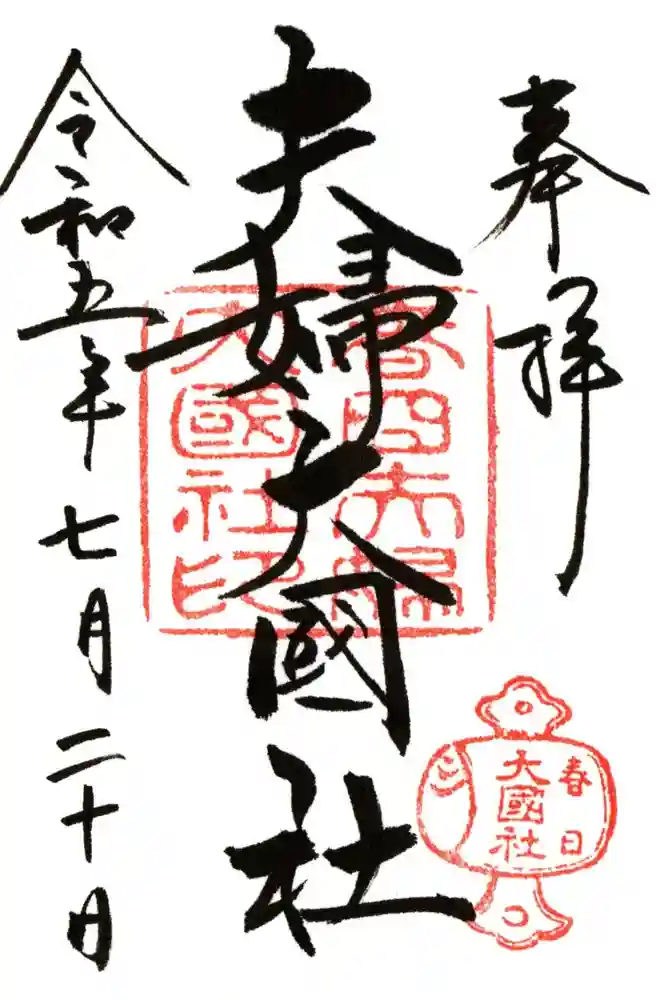 奉拝
夫婦大國社
春日夫婦
大國社印
春日
大國社
令和五年七月二十日